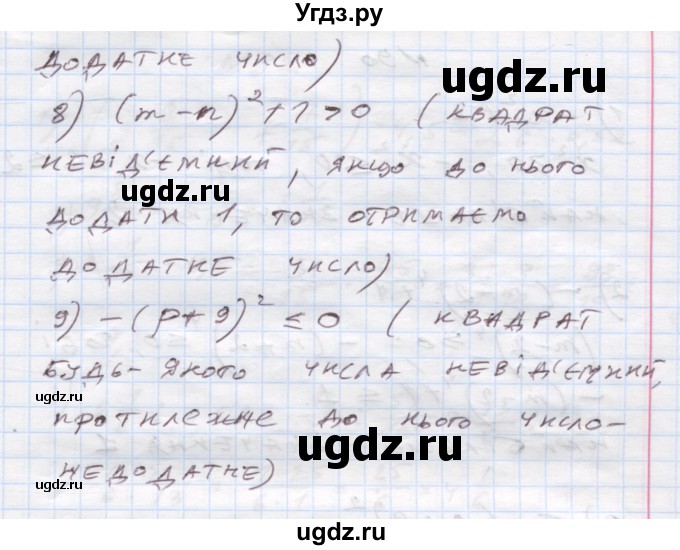 Угдз.ру
ДОДАТНЕ ЧИСЛО)
ugdz.ru
8) (m - n)² + 1 > 0 (КВАДРАТ
НЕВІД'ЄМНИЙ, ЯКЩО ДО НЬОГО
ugdz.ru
ugdz.ru
ДОДАТИ 1, ТО ОТРИМАЄМО
ДОДАТНЕ ЧИСЛО)
9) - (p + 9)² ≤ 0 (КВАДРАТ
БУДЬ-ЯКОГО ЧИСЛА НЕВІД'ЄМНИЙ,
ugdz.ru
ПРОТИЛЕЖНЕ ДО НЬОГО ЧИСЛО-
ugdz.ru
НЕДОДАТНЕ)
ugdz.ru
ugdz.ru